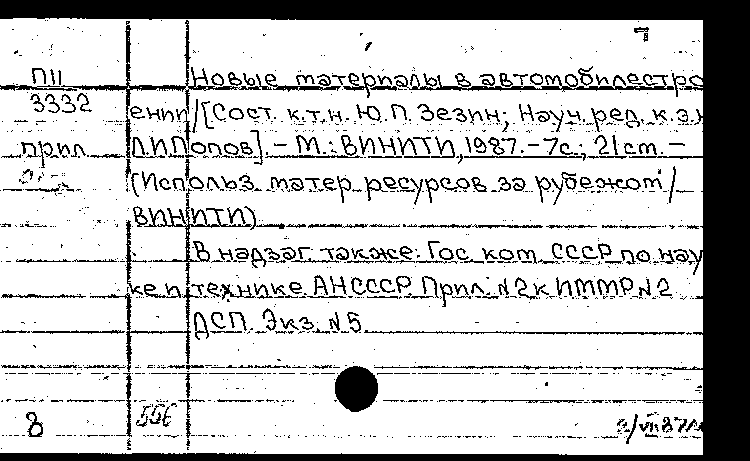 7
П11
3332
прил
Новые материалы в автомобилестро
ении /[Сост. к.т.н. Ю.П. Зезин; Науч. ред. к.э.н
Л.И.Попов]. – М.: ВИНИТИ, 1987. – 7с.; 21см. –
(Использ. матер. ресурсов за рубежом /
ВИНИТИ)
В надзаг. также: Гос. ком. СССР по нау
ке и технике. АНСССР. Прил. N2 к ИММР N2
ДСП. Экз. N5.
8
556